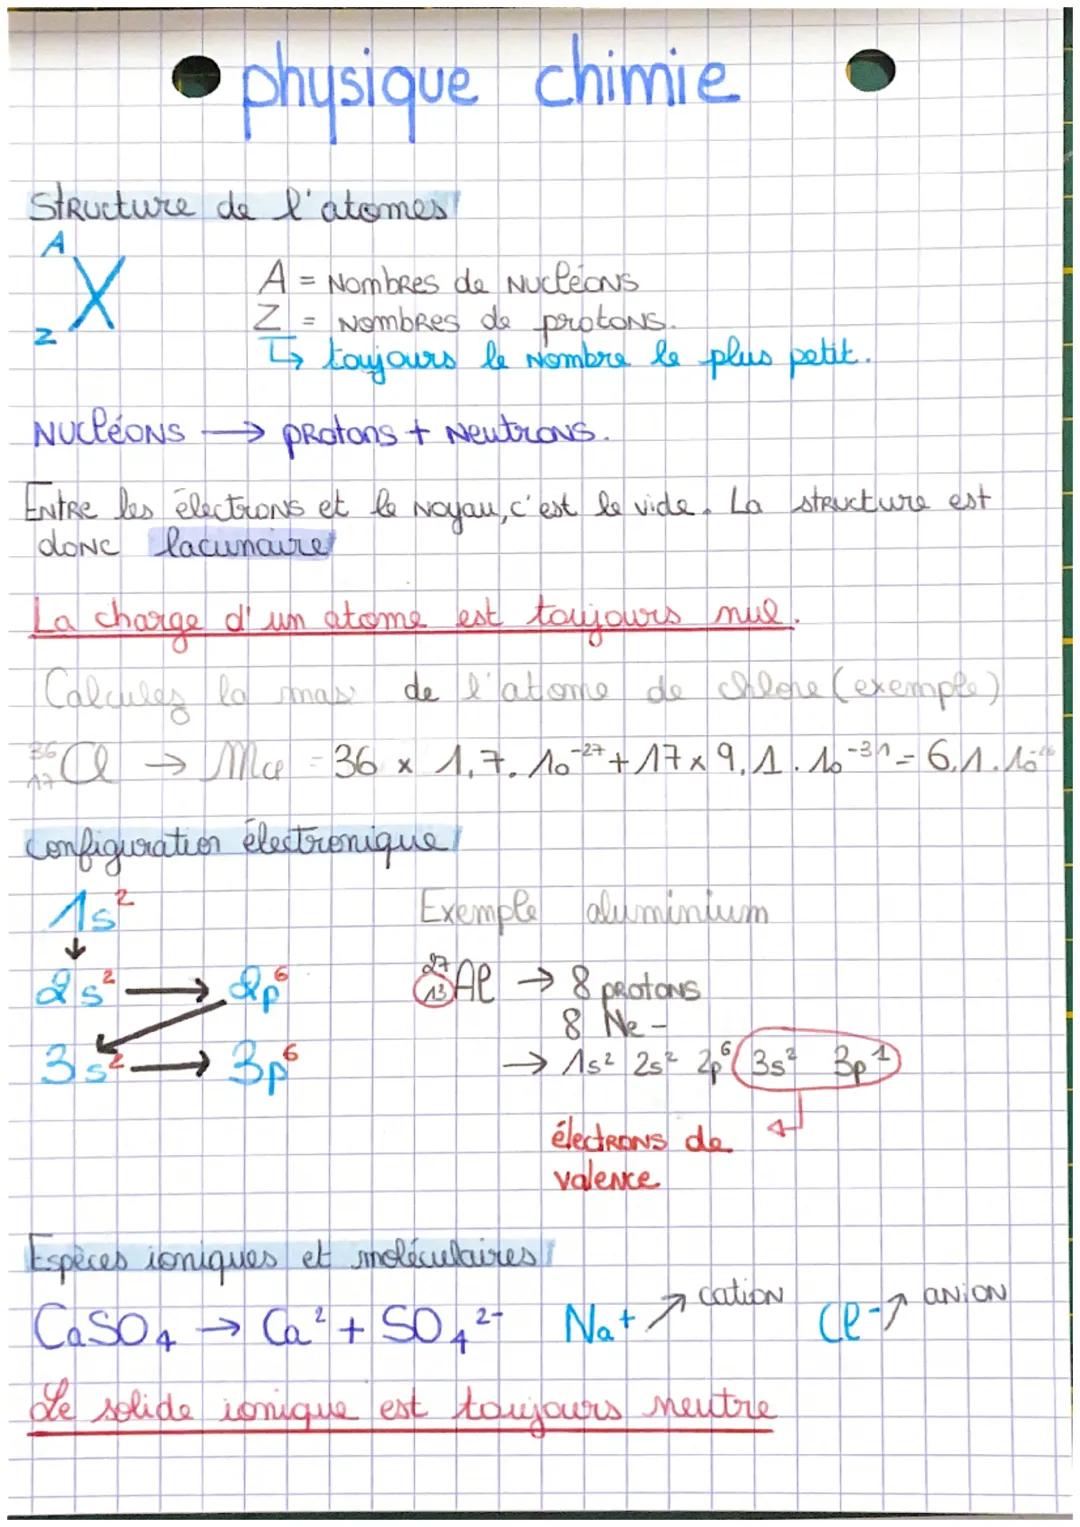 physique chimie
Structure de l'atomes
A
X
Z
A = Nombres de Nucléons
Z = Nombres de protons.
↳ toujours le Nombre le plus petit.
Nucléons → protons + Neutrons.
Entre les électrons et le noyau, c'est le vide. La structure est
donc lacunaire
La charge d'un atome est toujours nul.
Calculez la mas de l'atome de chlore (exemple)
³⁶₁₇Cl → Mce = 36 x 1,7.10⁻²⁷ + 17 x 9,1.10⁻³¹ = 6,1.10⁻²⁶
configuration électronique
1s²
Exemple aluminium
↓
2s² → 2p⁶
²⁷₁₃Al → 8 protons
8 Ne-
3s² → 3p⁶
→ 1s² 2s² 2p⁶ 3s² 3p¹
électrons de
valence
Espèces ioniques et moléculaires
CaSO₄ → Ca² + SO₄²⁻ Na+ ↗ cation Cl- ↗ anion
Le solide ionique est toujours neutre